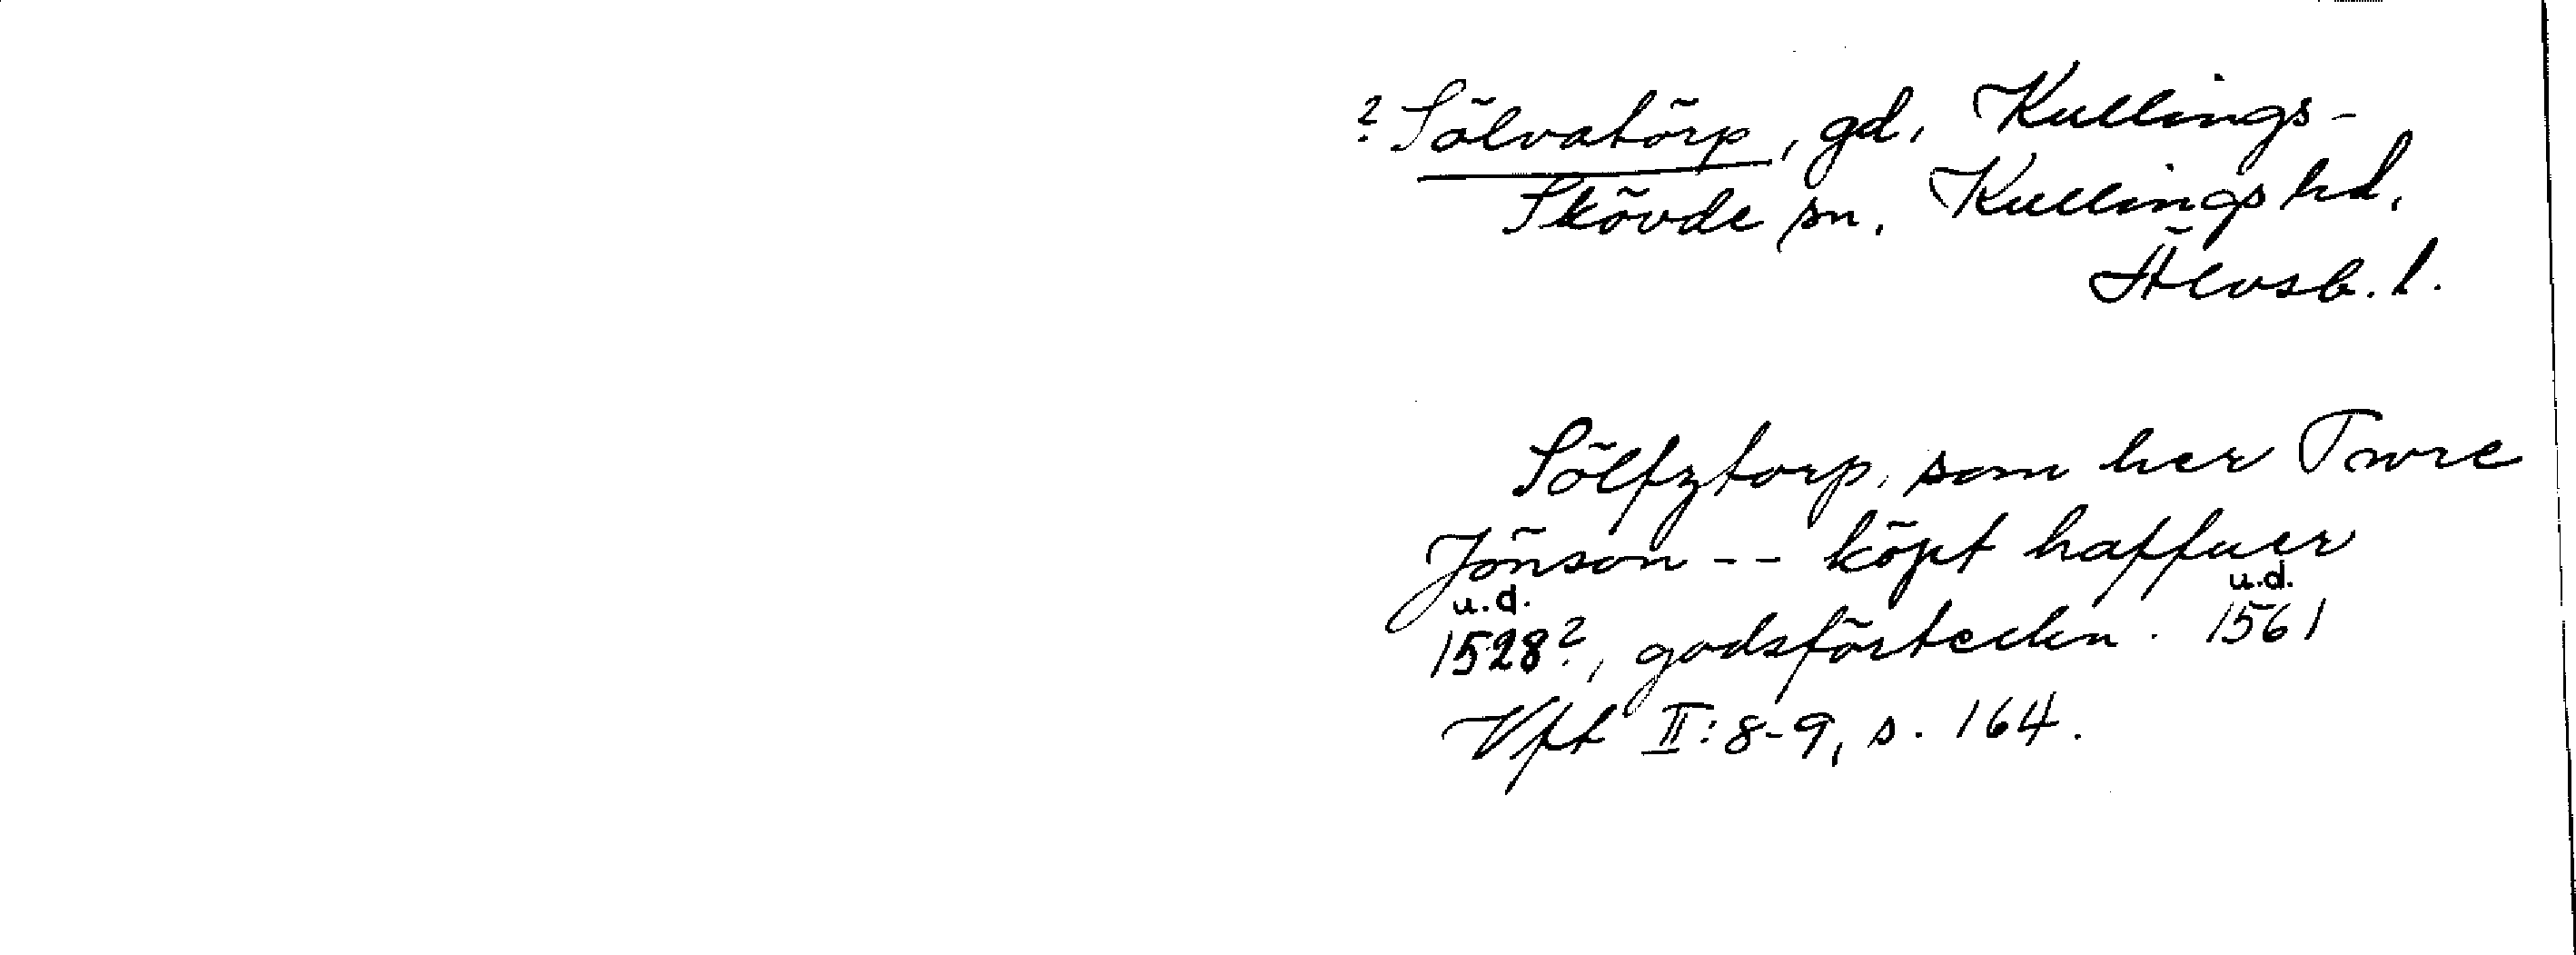 ? Sölvatörp, gd, Kullings-
Skövde sn. Kullings hd,
Älvsb. l.
Sölfztorp, som her Twre
Jönson -- köpt haffuer
u.d. u.d.
1528?, godsförteckn. 1561
Vft II: 8-9, s. 164.